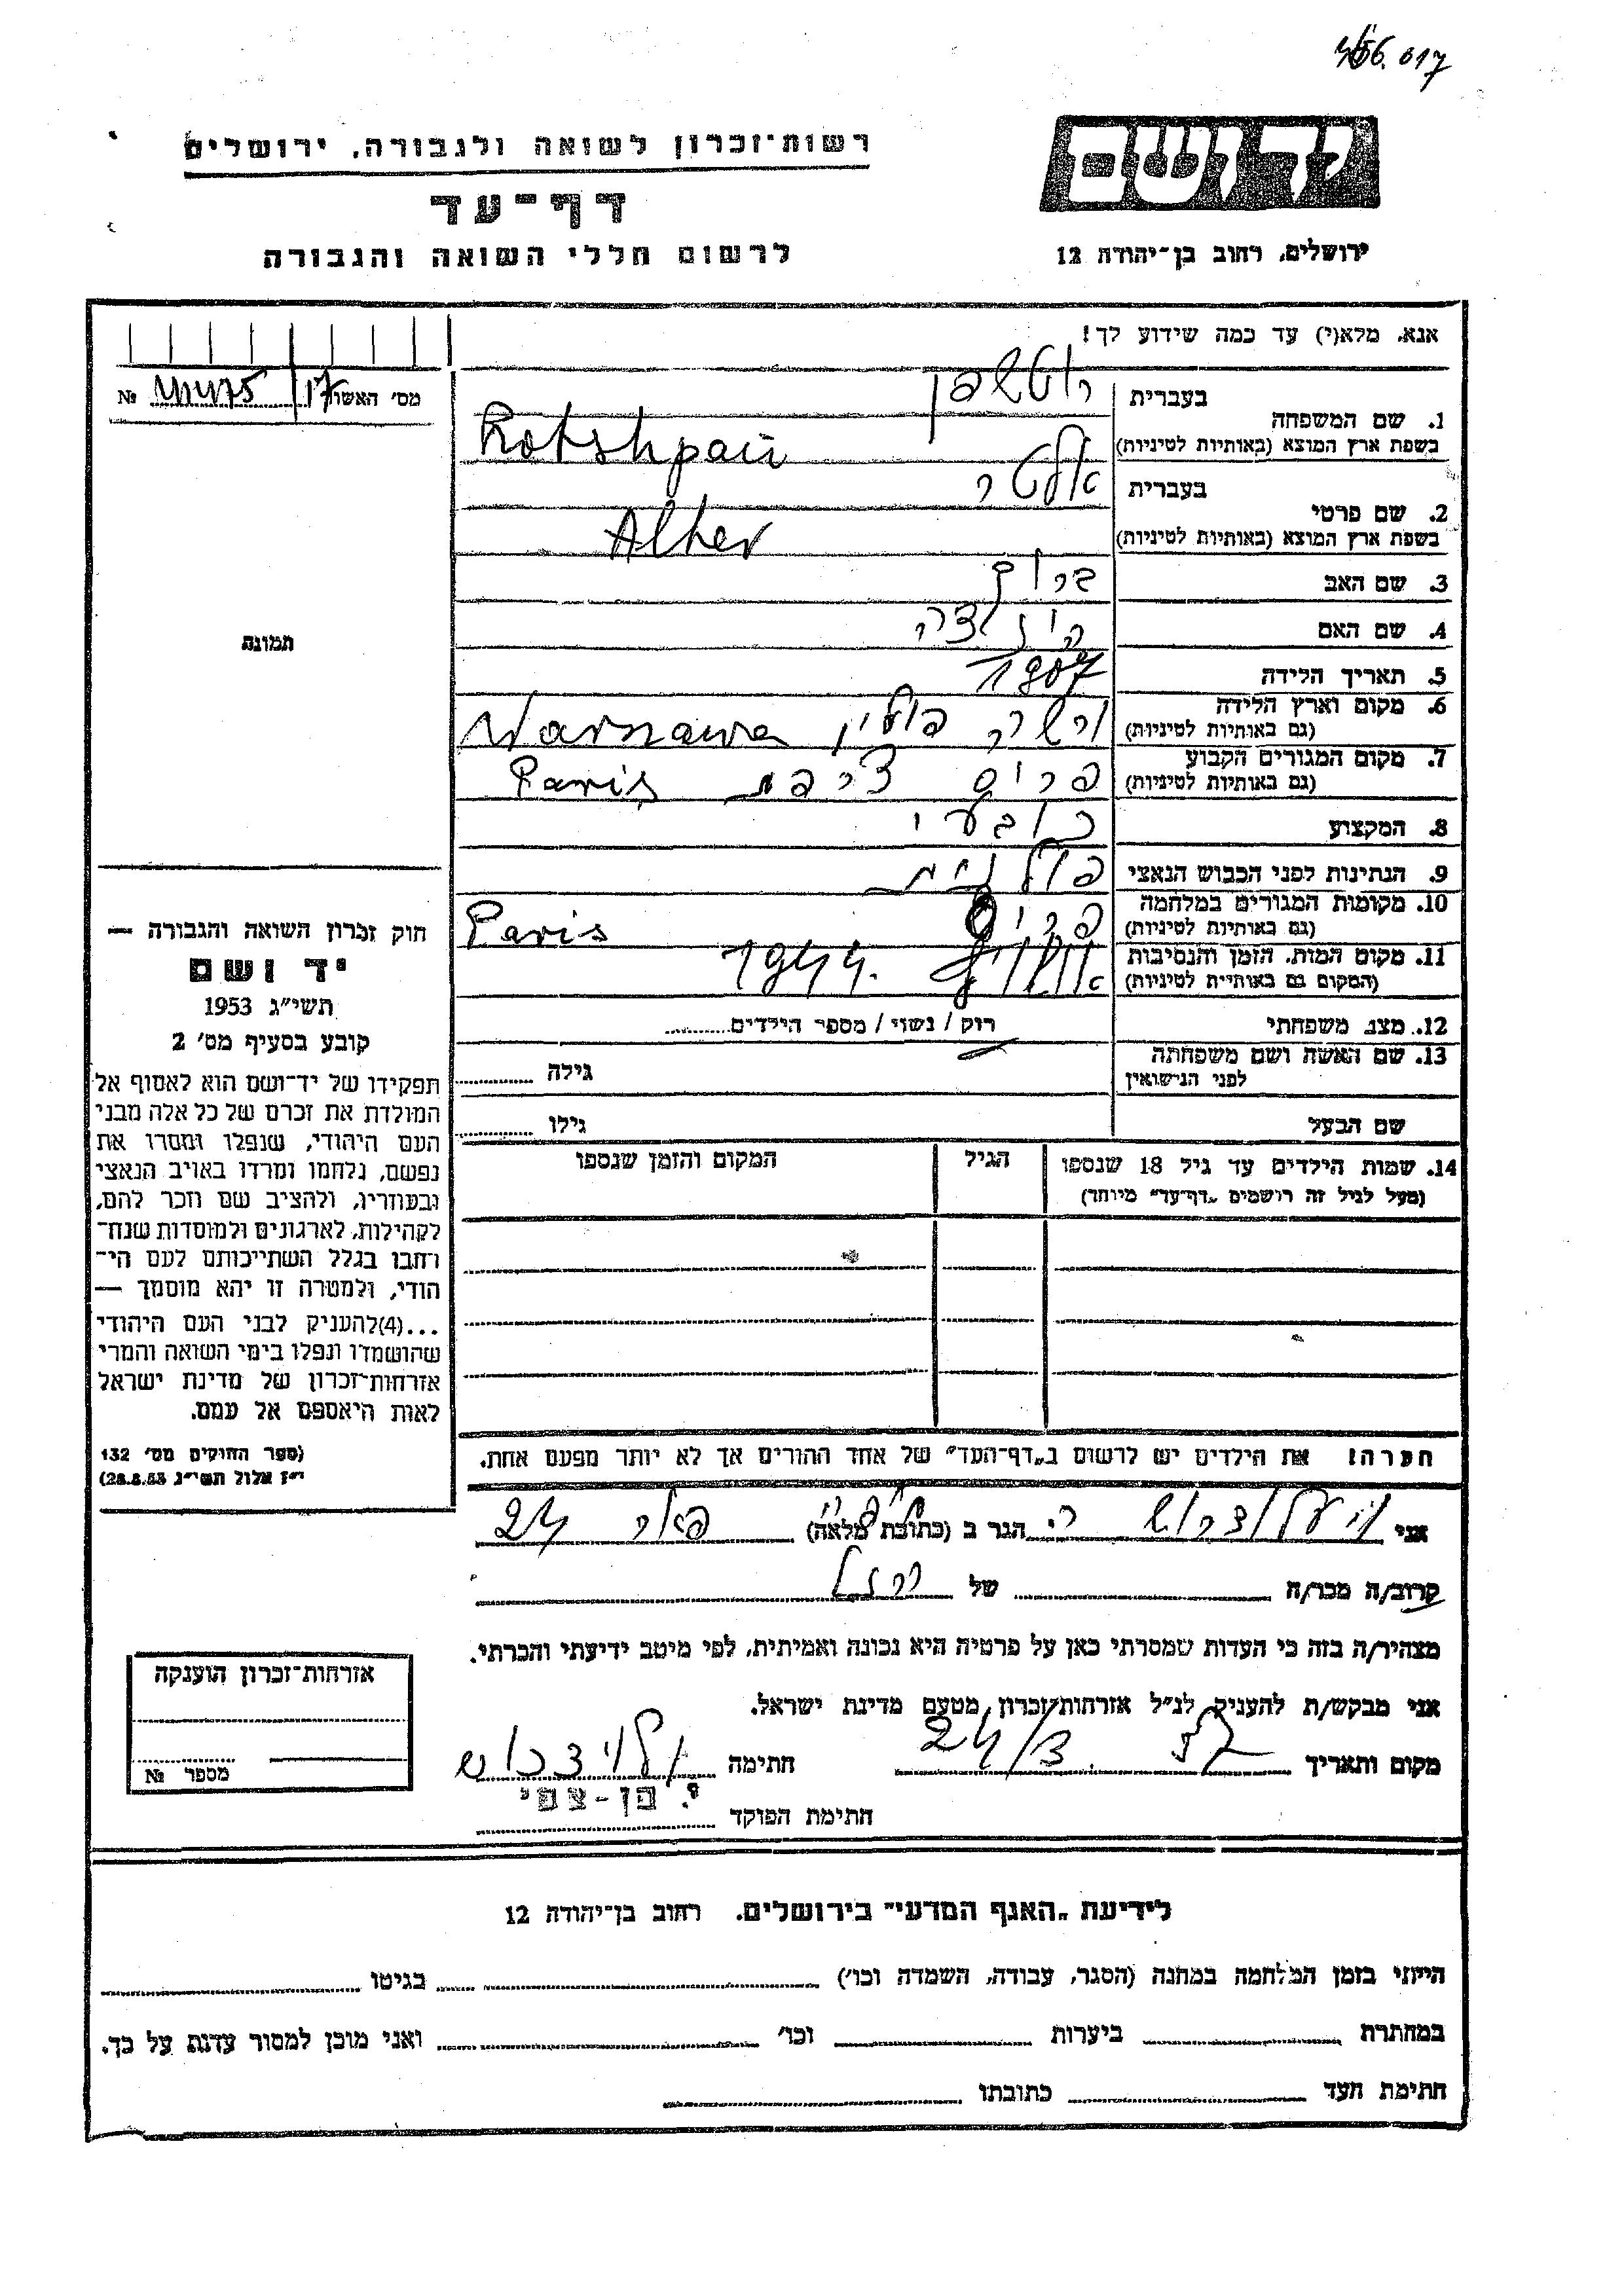 רשות־זכרון לשואה ולגבורה, ירושלים
דף־עד
לרשום חללי השואה והגבורה
יד ושם
ירושלים, רחוב בן־יהודה 12
אנא, מלא(י) עד כמה שידוע לך!
מס׳ האשור 17 №
1. שם המשפחה
בעברית
בשפת ארץ המוצא (באותיות לטיניות) Rotshpan
2. שם פרטי
בעברית אלטר
בשפת ארץ המוצא (באותיות לטיניות) Alter
3. שם האב ברוך
4. שם האם
5. תאריך הלידה 1907
6. מקום וארץ הלידה ורשה פולין Warszawa
(גם באותיות לטיניות)
7. מקום המגורים הקבוע פריס צרפת Paris
(גם באותיות לטיניות)
8. המקצוע כובעי
9. הנתינות לפני הכבוש הנאצי פולנית
10. מקומות המגורים במלחמה פריס Paris
(גם באותיות לטיניות)
11. מקום המות, הזמן והנסיבות 1944.
(המקום גם באותיות לטיניות)
12. מצב משפחתי רוק / נשוי / מספר הילדים
13. שם האשה ושם משפחתה גילה
לפני הנישואין
שם הבעל גילו
14. שמות הילדים עד גיל 18 שנספו הגיל המקום והזמן שנספו
(מעל לגיל זה רושמים „דף־עד״ מיוחד)
הערה! את הילדים יש לרשום ב„דף־העד״ של אחד ההורים אך לא יותר מפעם אחת.
תמונה
חוק זכרון השואה והגבורה —
יד ושם
תשי״ג 1953
קובע בסעיף מס׳ 2
תפקידו של יד־ושם הוא לאסוף אל
המולדת את זכרם של כל אלה מבני
העם היהודי, שנפלו ומסרו את
נפשם, נלחמו ומרדו באויב הנאצי
ובעוזריו, ולהציב שם וזכר להם,
לקהילות, לארגונים ולמוסדות שנח־
רחבו בגלל השתייכותם לעם הי־
הודי, ולמטרה זו יהא מוסמך —
...(4)להעניק לבני העם היהודי
שהושמדו ונפלו בימי השואה והמרי
אזרחות־זכרון של מדינת ישראל
לאות היאספם אל עמם.
(ספר החוקים מס׳ 132
י״ז אלול תשי״ג 28.8.53)
אני הגר ב (כתובת מלאה) 24
קרוב/ה מכר/ה של
מצהיר/ה בזה כי העדות שמסרתי כאן על פרטיה היא נכונה ואמיתית, לפי מיטב ידיעתי והכרתי.
אני מבקש/ת להעניק לנ״ל אזרחות־זכרון מטעם מדינת ישראל.
מקום ותאריך חתימה
חתימת הפוקד י. בן-צבי
אזרחות־זכרון הוענקה
מספר №
לידיעת „האגף המדעי״ בירושלים, רחוב בן־יהודה 12
הייתי בזמן המלחמה במחנה (הסגר, עבודה, השמדה וכו׳) בגיטו
במחתרת ביערות וכו׳ ואני מוכן למסור עדות על כך.
חתימת העד כתובתו